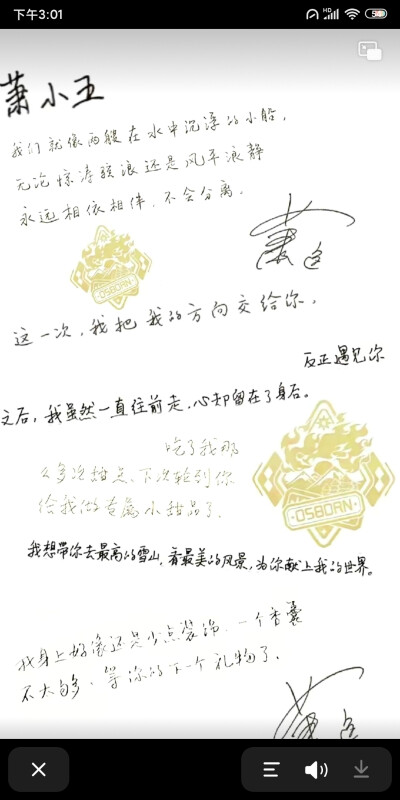 下午3:01
萧小五
我们就像两艘在水中沉浮的小船，
无论惊涛骇浪还是风平浪静
永远相依相伴，不会分离。
萧逸
这一次，我把我的方向交给你，
反正遇见你
之后，我虽然一直往前走，心却留在了身后。
吃了我那
么多次甜点，下次轮到你
给我做专属小甜品了。
OSBORN
我想带你去最高的雪山，看最美的风景，为你献上我的世界。
我身上好像还是少点装饰，一个香囊
不太够，等你的下一个礼物了。
萧逸